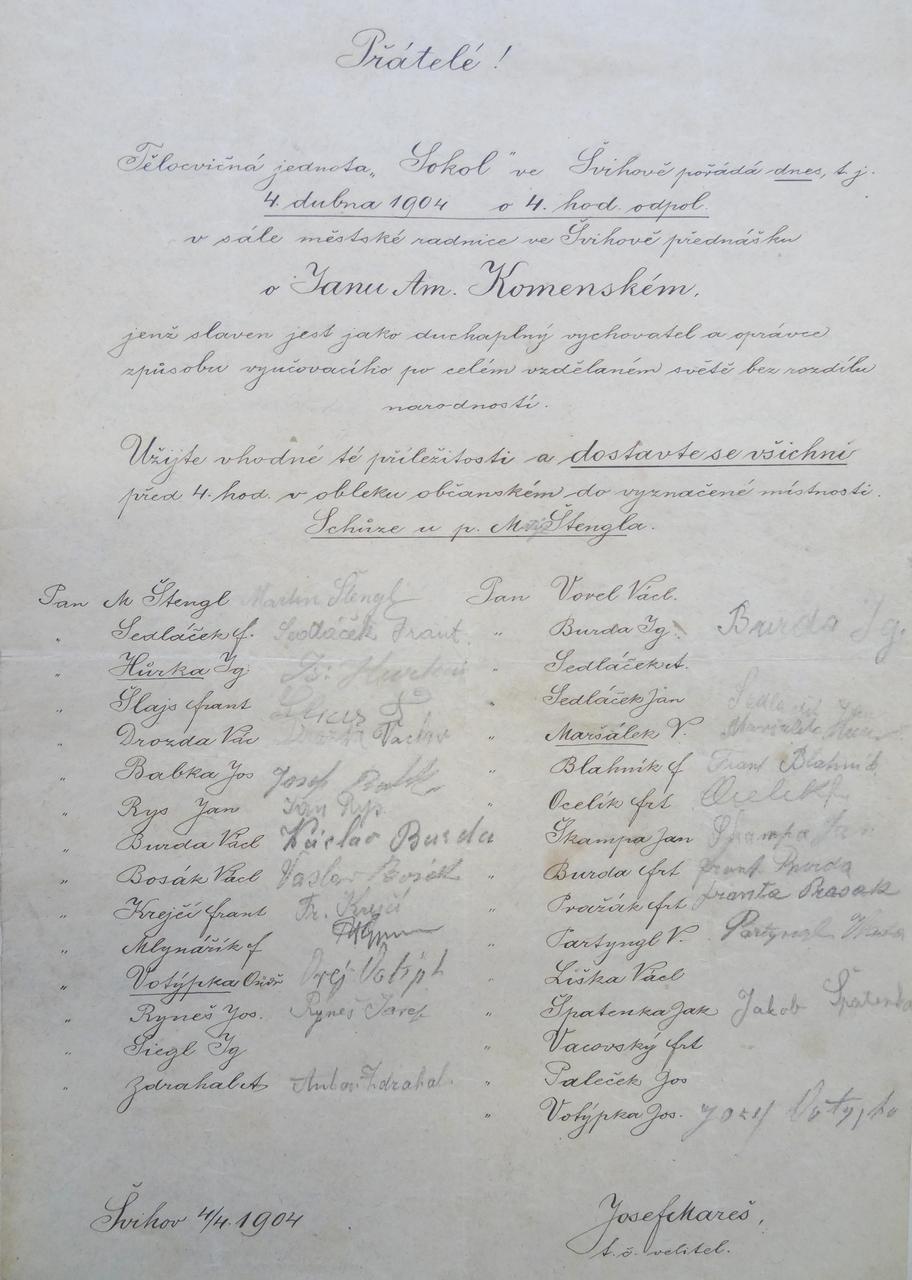 Přátelé!
Tělocvičná jednota „Sokol" ve Švihově pořádá dnes, t. j.
4. dubna 1904 o 4. hod. odpol.
v sále městské radnice ve Švihově přednášku
o Janu Am. Komenském,
jenž slaven jest jako duchaplný vychovatel a oprávce
způsobu vyučovacího po celém vzdělaném světě bez rozdílu
narodnosti.
Užijte vhodné té příležitosti a dostavte se všichni
před 4. hod. v obleku občanském do vyznačené místnosti.
Schůze u p. Štengla.
Pan M Štengl Martin Štengl
„ Sedláček f. Sedláček Frant.
„ Hůrka Ig
„ Šlajs frant
„ Drozda Vác Drozda Vaclav
„ Babka Jos Josef
„ Rys Jan Jan Rys
„ Burda Václ Václav Burda
„ Bosák Václ Vaslav Bosák
„ Krejčí frant Fr. Krejčí
„ Mlynářík f
„ Votýpka Ondř
„ Ryneš Jos. Ryneš Josef
„ Siegl Ig
„ Zdrahal A Zdrahal
Pan Vorel Václ.
„ Burda Ig. Burda Ig.
„ Sedláček A.
„ Sedláček Jan Sedláček Jan
„ Maršálek V.
„ Blahník f Frant Blahník
„ Ocelík frt Ocelík
„ Škampa Jan Škampa Jan
„ Burda frt frant Burda
„ Pražák frt franta Prasak
„ Partyngl V. Partyngl
„ Liška Václ
„ Spatenka Jak Jakob Špatenka
„ Vacovský frt
„ Paleček Jos
„ Votýpka Jos. Josef Votypka
Švihov 4/4. 1904
Josef Mareš,
t. č. velitel.